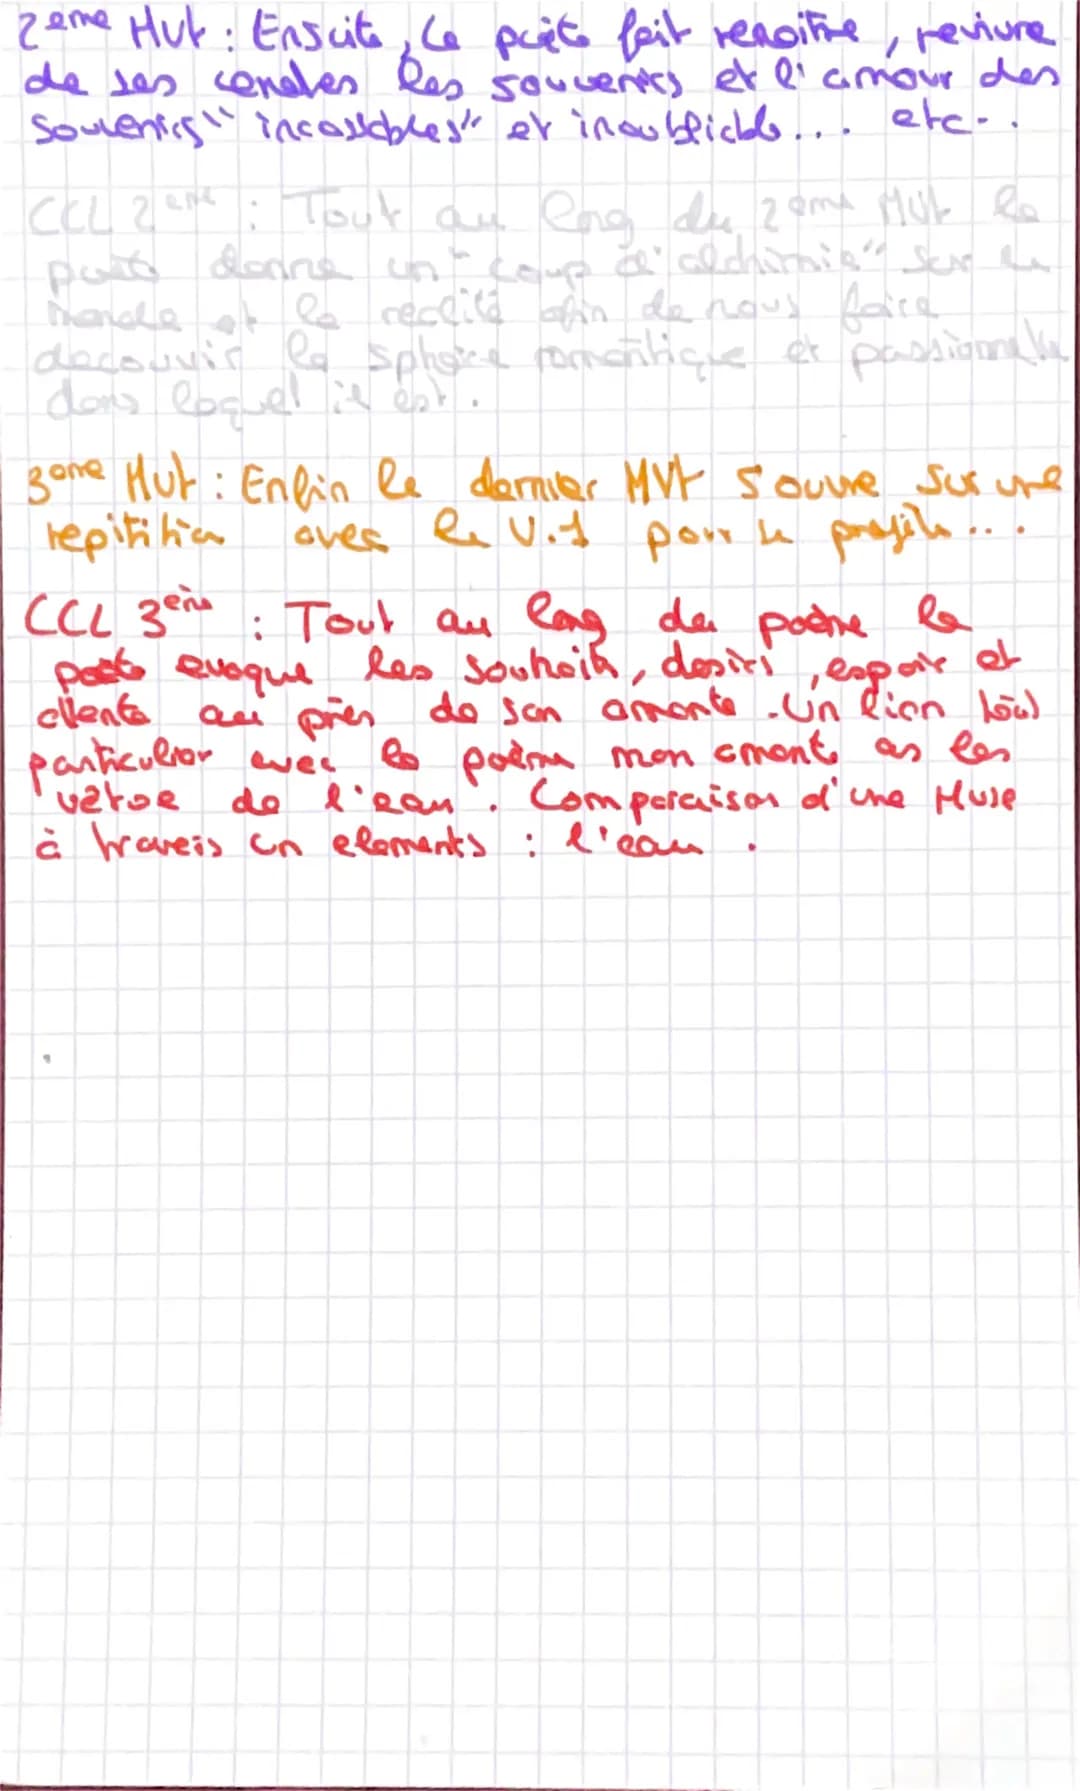 2eme Mvt : Ensuite, le poète fait renoitre, revivre
de ses cendres les souvenirs et l'amour des
souvenirs "incassables" et inoubliable... etc..
CCL 2eme : Tout au long du 2eme MVt le
poète donne un "coup d'alchimie" sur le
monde et la réalité afin de nous faire
decouvrir la sphère romantique et passionnelle
dans loquel il est.
3eme Mvt : Enfin le dernier MVt s'ouvre sur une
repitition avec le V.1 pour le ...
CCL 3eme : Tout au long du poème le
poete evoque les souhaits, desirs, espoir et
attente au près de son amante. Un lien
particulier avec le poème mon amante as les
vertue de l'eau. Comparaison d'une Muse
à travers un elements : l'eau.